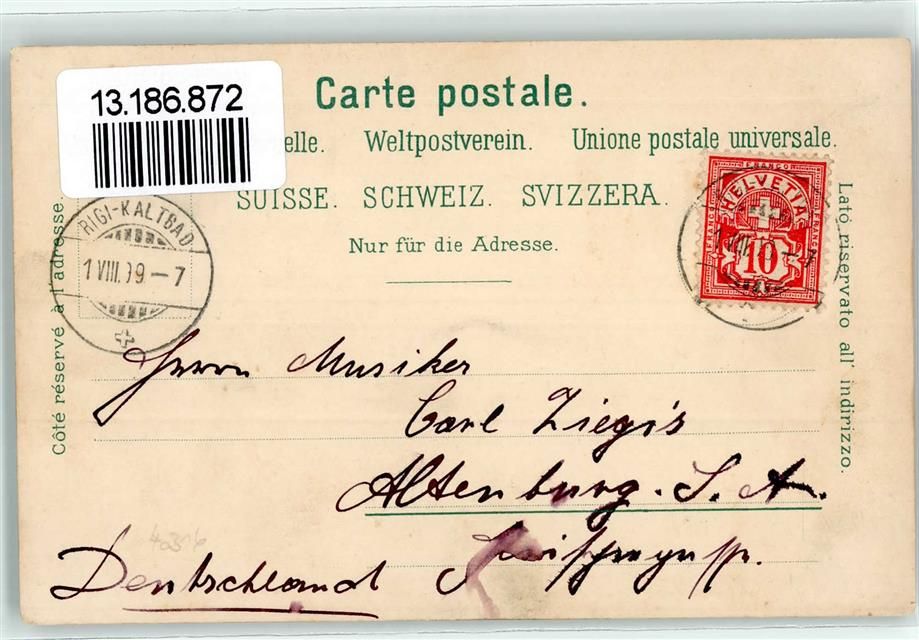 13.186.872
Carte postale.
elle. Weltpostverein. Unione postale universale.
SUISSE. SCHWEIZ. SVIZZERA.
Nur für die Adresse.
Côté réservé à l'adresse.
Lato riservato all' indirizzo.
RIGI-KALTBAD
1 VIII. 09 - 7
FRANCO
HELVETIA
FRANCO
FRANCO
10
1 VIII. 09 - 7
Herrn Musiker
Carl Ziegis
Altenburg. S. A.
Deutschland